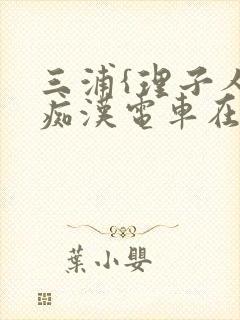 三浦{理子人
痴漢電車在
葉小嬰